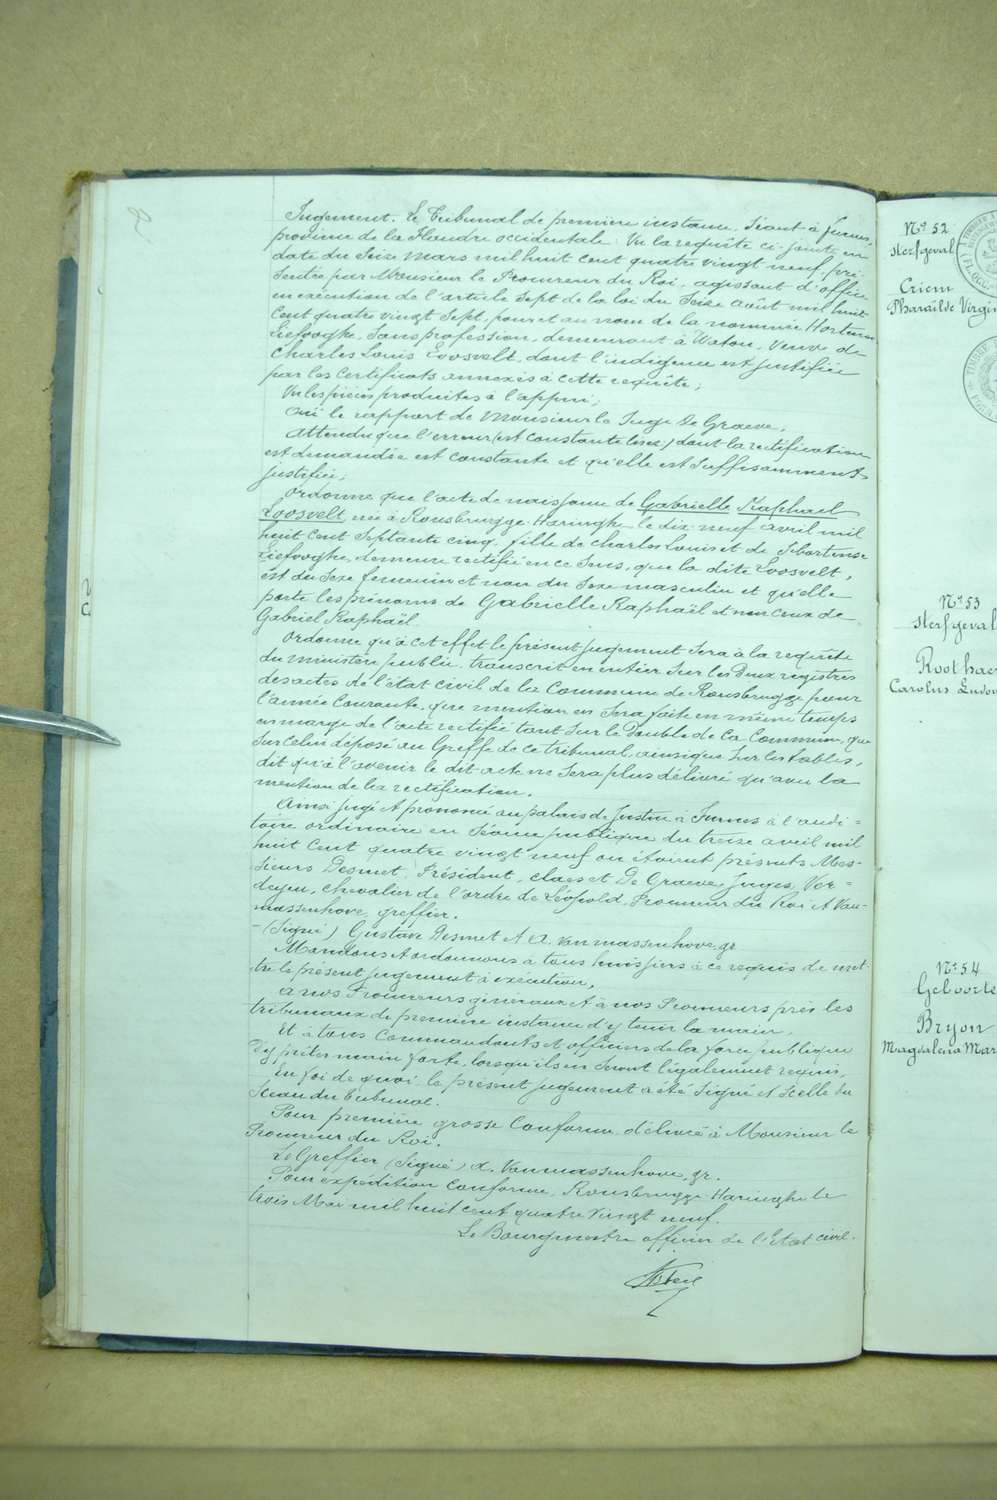 Jugement. Le Tribunal de première instance, Séant à Furnes,
province de la Flandre occidentale. Vu la requête ci-jointe en
date du Seize Mars mil huit cent quatre vingt neuf, pré-
sentée par Monsieur le Procureur du Roi, agissant d'office
en exécution de l'article sept de la loi du Seize août mil huit
cent quatre vingt sept, pour et au nom de la nommée Hortense
Liefooghe, sans profession, demeurant à Watou, veuve de
Charles Louis Loosvelt, dont l'indigence est justifiée
par les certificats annexés à cette requête;
Vu les pièces produites à l'appui;
Ouï le rapport de Monsieur le Juge De Graeve,
Attendu que l'erreur (est constante) dont la rectification
est demandée est constante et qu'elle est suffisamment
justifiée;
Ordonne que l'acte de naissance de Gabrielle Raphael
Loosvelt, née à Rousbrugge-Haringhe le dix neuf avril mil
huit cent septante cinq, fille de Charles Louis et de Hortense
Liefooghe, demeure rectifié en ce sens, que la dite Loosvelt,
est du Sexe femenin et non du Sexe masculin et qu'elle
porte les prénoms de Gabrielle Raphaël et non ceux de
Gabriel Raphaël
Ordonne qu'à cet effet le présent jugement sera à la requête
du ministère public, transcrit en entier sur les Deux registres
des actes de l'état civil de la Commune de Rousbrugge pour
l'année courante, que mention en sera faite en même temps
en marge de l'acte rectifié tant sur le Double de la Commune, que
sur celui déposé au Greffe de ce tribunal, ainsi que sur les tables,
dit qu'à l'avenir le dit acte ne sera plus délivré qu'avec la
mention de la rectification.
Ainsi jugé et prononcé au palais de Justice à Furnes à l'audi=
toire ordinaire en Séance publique du treize avril mil
huit cent quatre vingt neuf où étaient présents Mes-
sieurs Desmet, Président, Claes et De Graeve, Juges, Ver=
deyen, chevalier de l'ordre de Léopold, Procureur du Roi et Van-
massenhove, greffier.
-(Signé) Gustave Desmet et A. Vanmassenhove, gr
Mandons et ordonnons à tous huissiers à ce requis de met-
tre le présent jugement à exécution,
à nos Procureurs généraux et à nos Procureurs près les
tribunaux de première instance d'y tenir la main,
Et à tous Commandants et officiers de la force publique
d'y prêter main forte, lorsqu'ils en seront légalement requis,
En foi de quoi, le présent jugement a été signé et scellé du
Sceau du Tribunal.
Pour première grosse conforme, délivrée à Monsieur le
Procureur du Roi.
Le Greffier (Signé) A. Vanmassenhove, gr.
Pour expédition conforme, Rousbrugge-Haringhe le
trois Mai mil huit cent quatre vingt neuf.
Le Bourgmestre officier de l'Etat civil.
N° 52
Sterfgeval
Criem
Pharaïlde Virgi
N° 53
Sterfgeval
Roothae
Carolus Ludov
N° 54
Geboorte
Bryon
Magdalena Mar